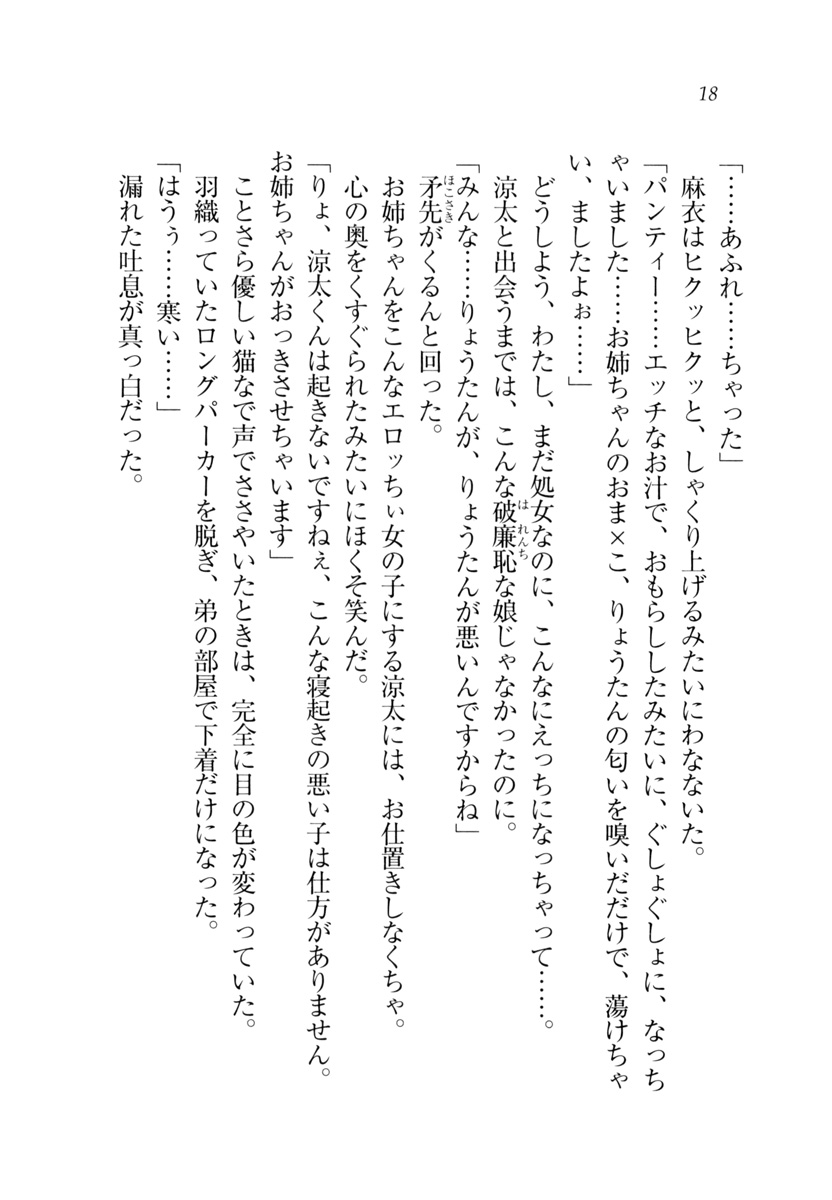 18
「……あふれ……ちゃった」
麻衣はヒクッヒクッと、しゃくり上げるみたいにわなないた。
「パンティー……エッチなお汁で、おもらししたみたいに、ぐしょぐしょに、なっち
ゃいました……お姉ちゃんのおま×こ、りょうたんの匂いを嗅いだだけで、蕩けちゃ
い、ましたよぉ……」
どうしよう、わたし、まだ処女なのに、こんなにえっちになっちゃって……。
涼太と出会うまでは、こんな破廉恥な娘じゃなかったのに。
「みんな……りょうたんが、りょうたんが悪いんですからね」
矛先がくるんと回った。
お姉ちゃんをこんなエロッちぃ女の子にする涼太には、お仕置きしなくちゃ。
心の奥をくすぐられたみたいにほくそ笑んだ。
「りょ、涼太くんは起きないですねぇ、こんな寝起きの悪い子は仕方がありません。
お姉ちゃんがおっきさせちゃいます」
ことさら優しい猫なで声でささやいたときは、完全に目の色が変わっていた。
羽織っていたロングパーカーを脱ぎ、弟の部屋で下着だけになった。
「はうぅ……寒い……」
漏れた吐息が真っ白だった。